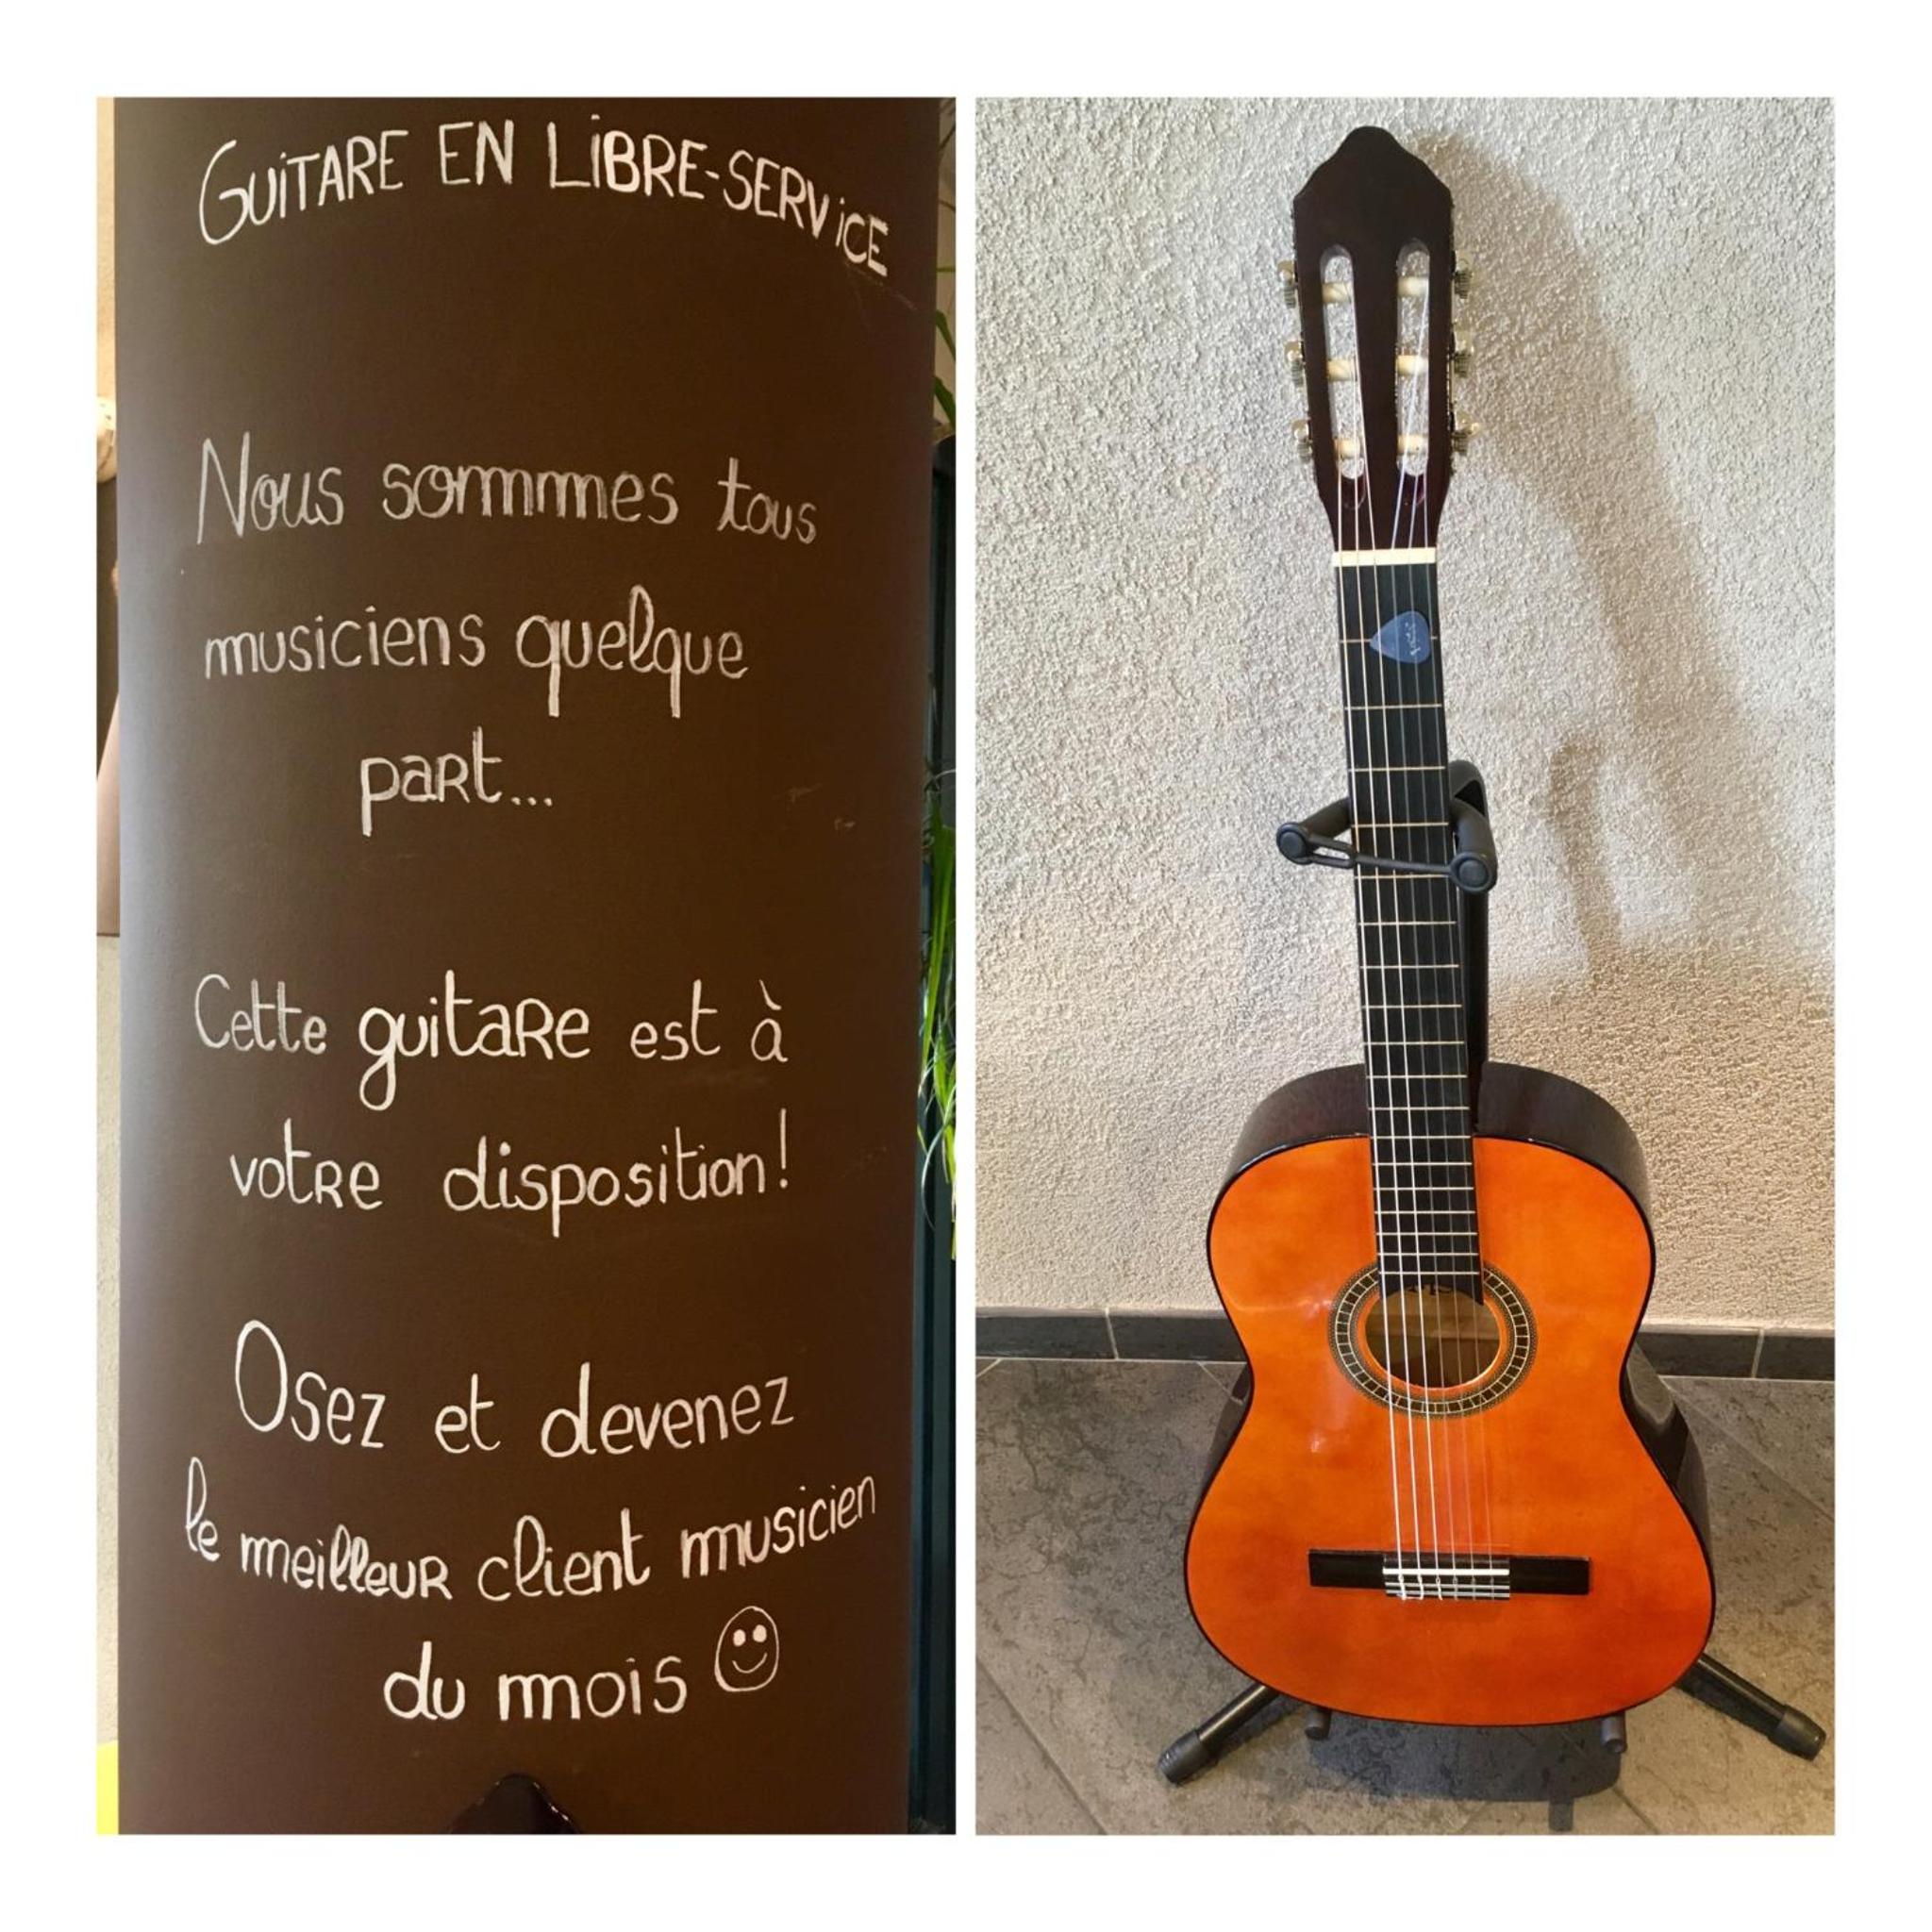 GUiTARE EN LiBRE-SERViCE
Nous sommes tous
musiciens quelque
part...
Cette guitaRe est à
votRe disposition!
Osez et devenez
le meilleuR client musicien
du mois